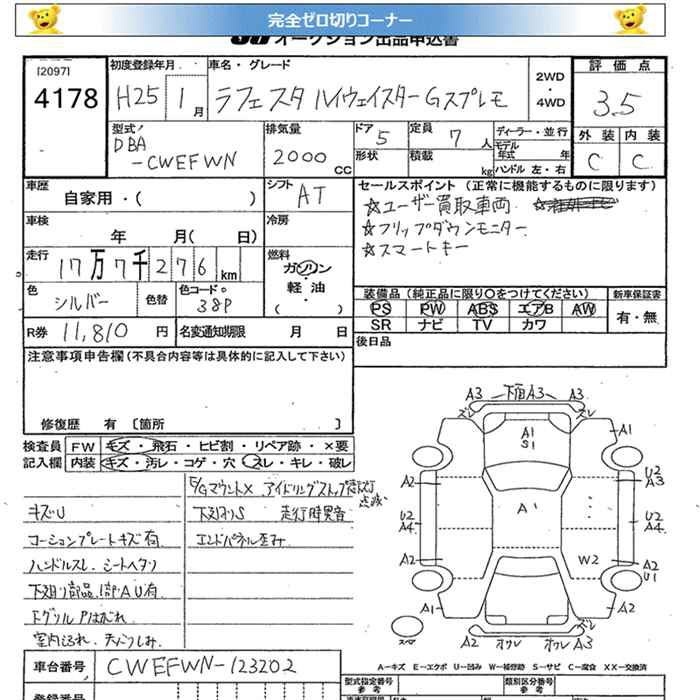 完全ゼロ切りコーナー
オークション出品申込書
[2097]
4178
初度登録年月
H25 1月
車名・グレード
ラフェスタ ハイウェイスターGスプレモ
2WD
・
4WD
評価点
3.5
外装 内装
C C
型式
DBA
-CWEFWN
排気量
2000 CC
ドア 5
形状
定員 7 人
積載 kg
ディーラー・並行
モデル年式 年
ハンドル 左・右
車歴
自家用・( )
シフト AT
車検
年 月( 日)
冷房
セールスポイント (正常に機能するものに限ります)
☆ユーザー買取車両
☆フリップダウンモニター
☆スマートキー
走行
17万7千276 km
燃料
ガソリン
軽油
色
シルバー
色替
色コードNo
38P
装備品(純正品に限り○をつけてください)
PS PW ABS エアB AW
SR ナビ TV カワ
新車保証書
有・無
R券 11,810 円
名変通知期限 月 日
後日品
注意事項申告欄(不具合内容等は具体的に記入して下さい)
修復歴 有 〔箇所 〕
検査員
記入欄
FW キズ・飛石・ヒビ割・リペア跡・×要
内装 キズ・汚レ・コゲ・穴・スレ・キレ・破レ
E/Gマウント× アイドリングストップ警告灯点滅
キズU
下廻りS 走行時異音
コーションプレートキズ有
エンドパネル歪み
ハンドルスレ、シートヘタリ
下廻り部品1部AU有
FグリルPはがれ
室内汚れ、天パリしみ
車台番号 CWEFWN-123202
登録番号
A3 下面A3 A3
ズレ ズレ
A1
S1
A1 A1
A2 U2 A3
A
U2 A4 U2 A4
W2
A2 A2
U1
A1 A2
スペア
A2 オワレ オワレ A3
ズレ ズレ
A-キズ E-エクボ U-凹み W-補修跡 S-サビ C-腐食 XX-交換済
型式指定番号
参考
類別区分番号
参考